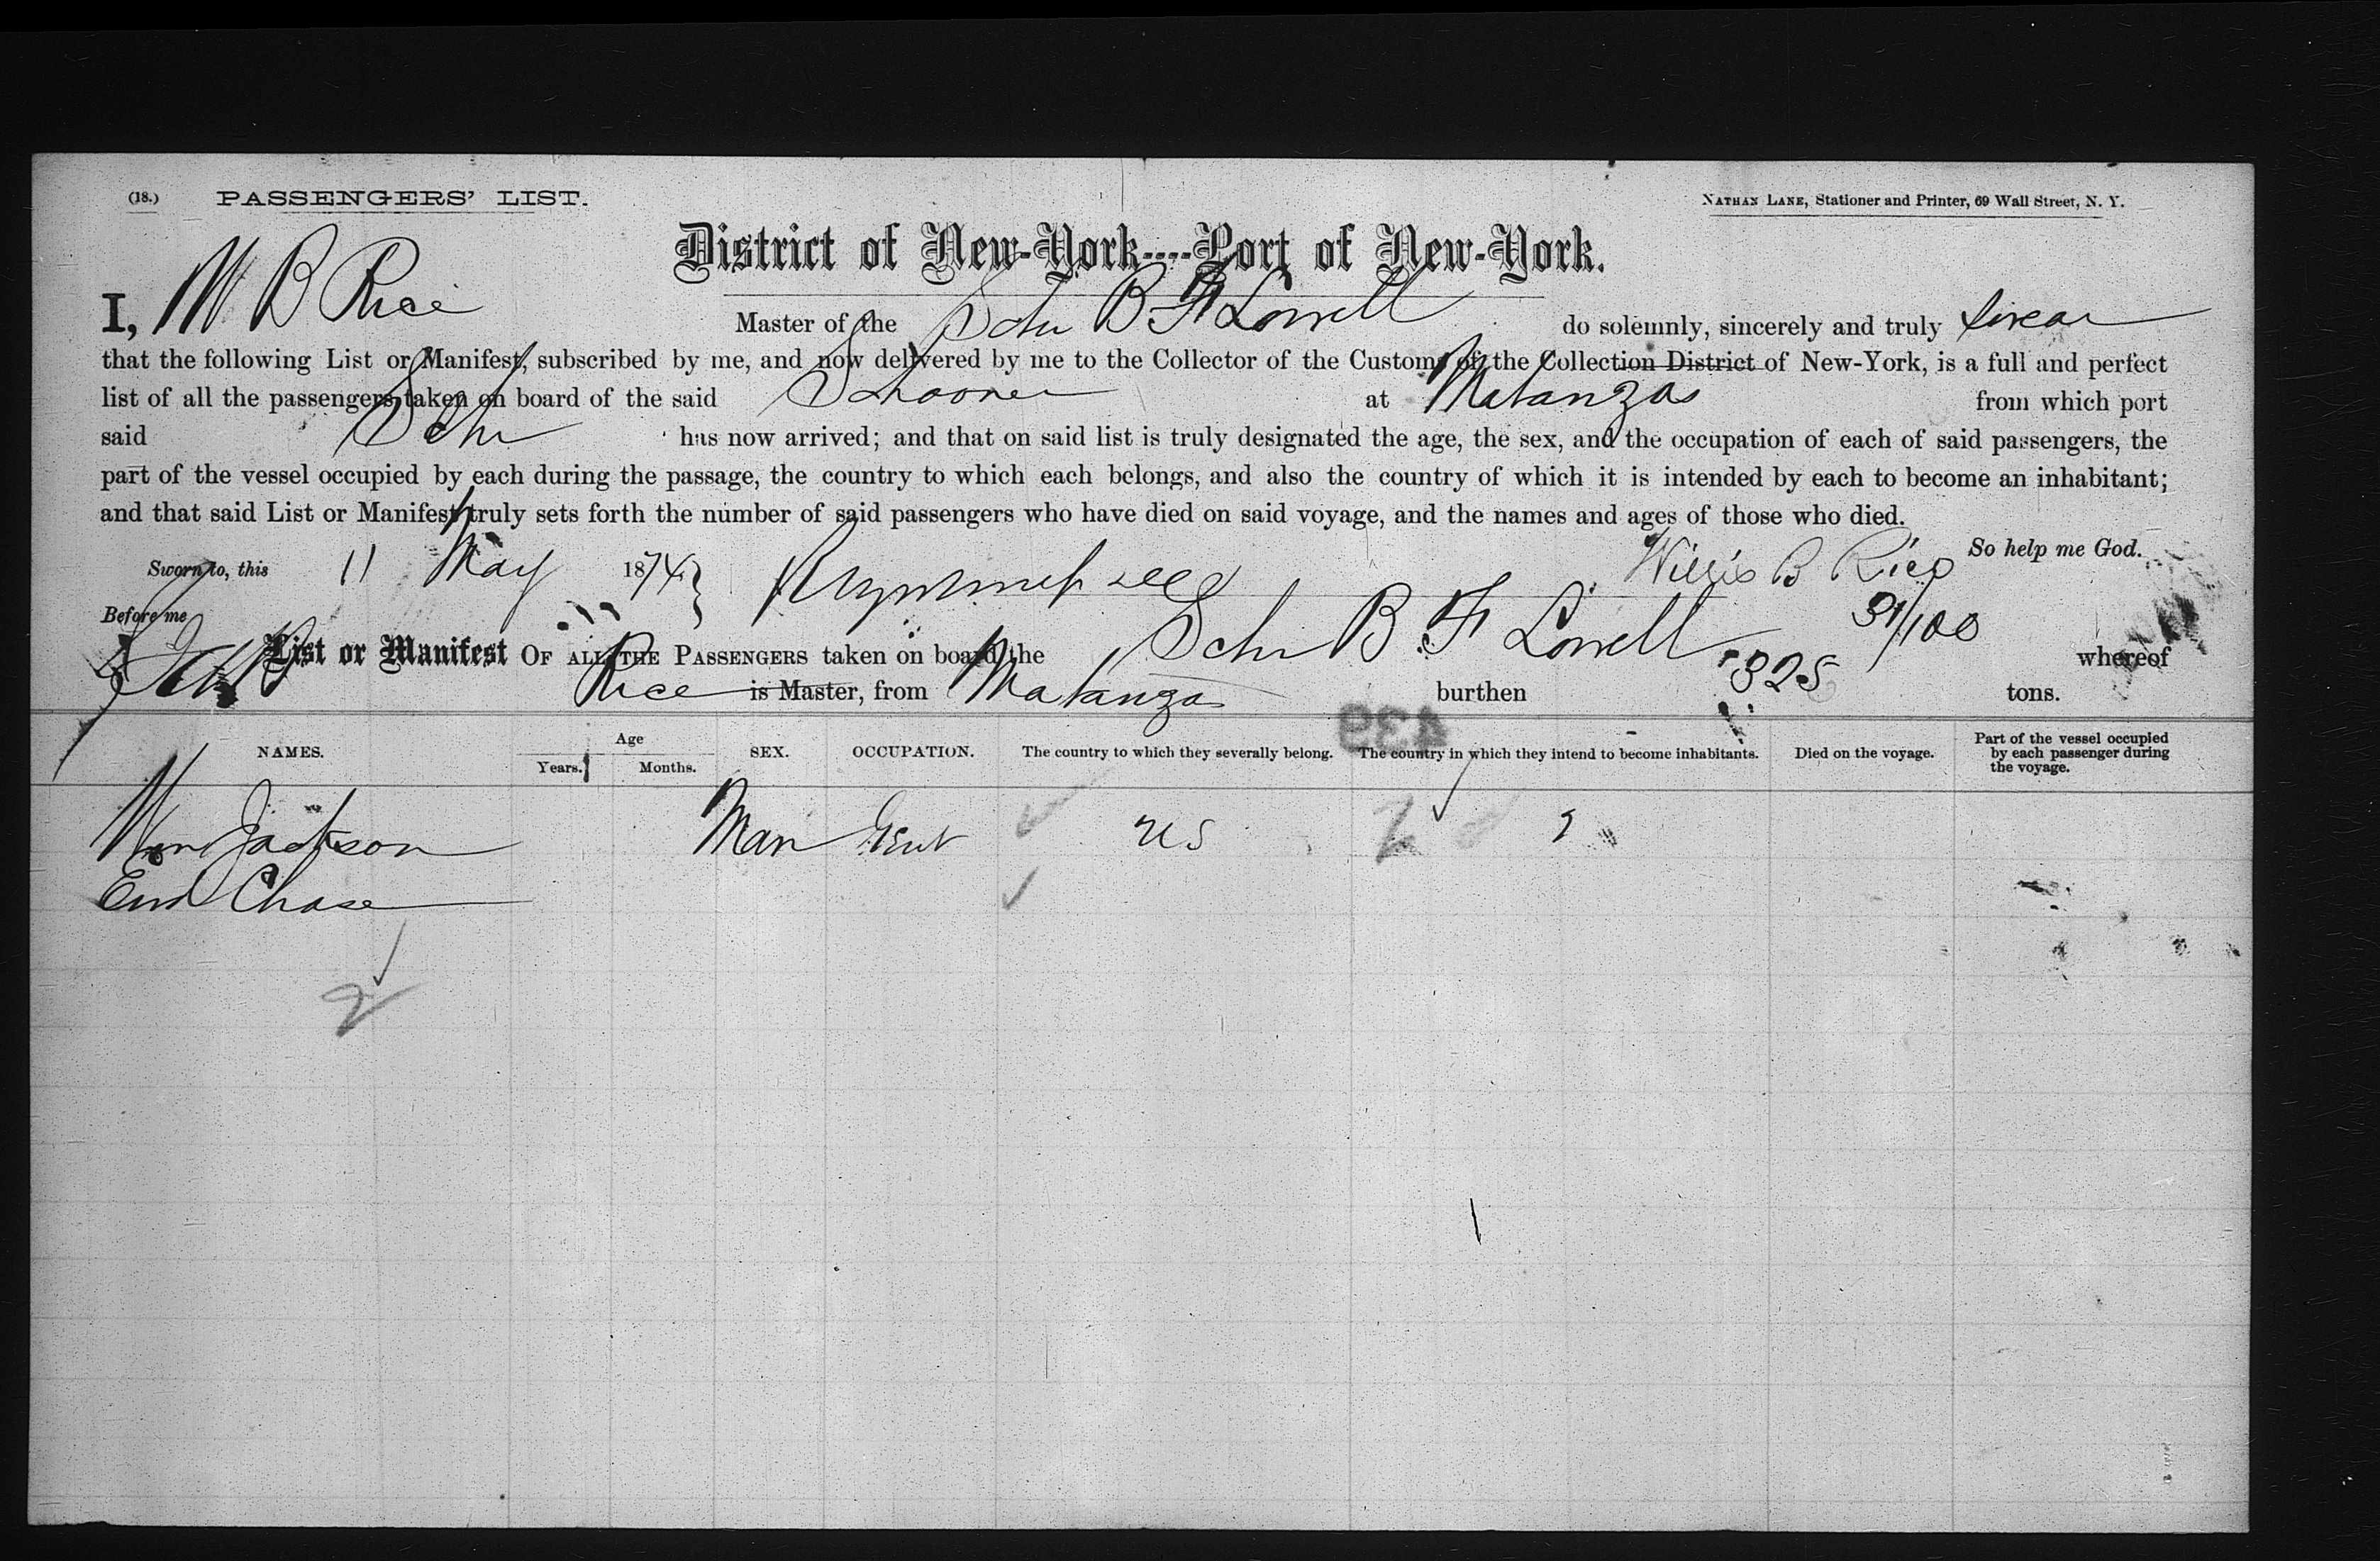 (18.) PASSENGERS' LIST. NATHAN LANE, Stationer and Printer, 69 Wall Street, N. Y.
District of New-York----Port of New-York.
I, W B Rice Master of the Schr B F Lowell do solemnly, sincerely and truly swear
that the following List or Manifest, subscribed by me, and now delivered by me to the Collector of the Customs of the Collection District of New-York, is a full and perfect
list of all the passengers taken on board of the said Schooner at Matanzas from which port
said Schr has now arrived; and that on said list is truly designated the age, the sex, and the occupation of each of said passengers, the
part of the vessel occupied by each during the passage, the country to which each belongs, and also the country of which it is intended by each to become an inhabitant;
and that said List or Manifest truly sets forth the number of said passengers who have died on said voyage, and the names and ages of those who died.
So help me God.
Sworn to, this 11 May 1874 Willis B Rice
Before me
List or Manifest OF ALL THE PASSENGERS taken on board the Schr B F Lowell whereof
Rice is Master, from Matanzas burthen 325 31/100 tons.
439
NAMES. Age Years. Months. SEX. OCCUPATION. The country to which they severally belong. The country in which they intend to become inhabitants. Died on the voyage. Part of the vessel occupied by each passenger during the voyage.
Wm Jackson Man Gent US 2
Chase
2